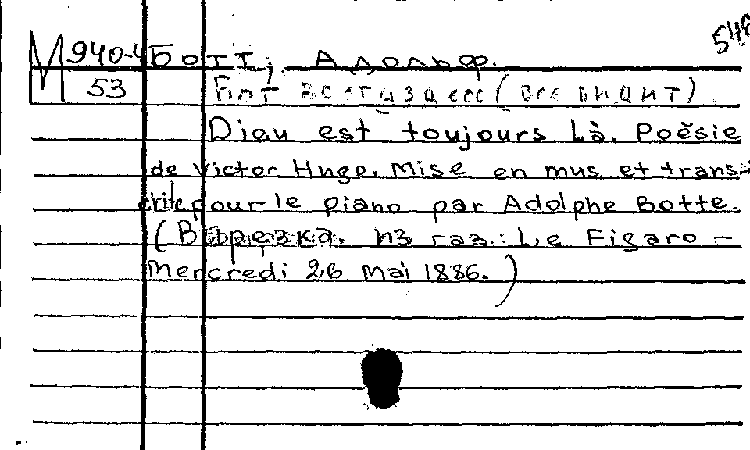 548
М 940-4 Ботт, Адольф.
53
Бог всегда здесь (
Diau est toujours Là. Poësie
de Victor Hugo. Mise en mus et trans-
crite pour le piano par Adolphe Botte.
(Вырезка. из газ.: Le Figaro –
Mercredi 26 Mai 1886.)